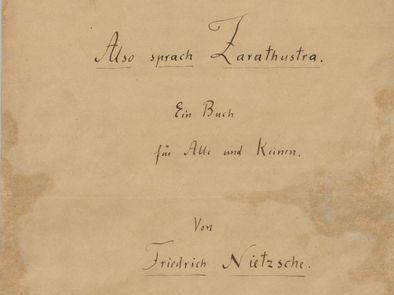 Also sprach Zarathustra.
Ein Buch
für Alle und Keinen.
Von
Friedrich Nietzsche.